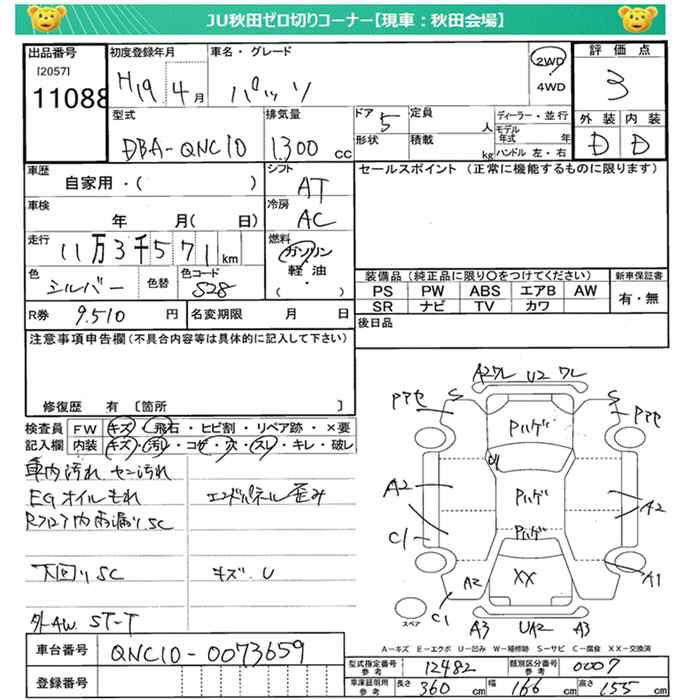 JU秋田ゼロ切りコーナー【現車：秋田会場】
出品番号 初度登録年月 車名・グレード 2WD 4WD 評価点
[2057]
11088 H19 4月 パッソ 3
型式 排気量 ドア 5 定員 人 ディーラー・並行 外装 内装
DBA-QNC10 1.300 cc 形状 積載 kg モデル年式 年 ハンドル 左・右 D D
車歴 自家用・( ) シフト AT セールスポイント（正常に機能するものに限ります）
車検 年 月( 日) 冷房 AC
走行 11万3千571km 燃料 ガソリン 軽油 ( )
色 シルバー 色替 色コード S28
装備品（純正品に限り○をつけてください） 新車保証書
PS PW ABS エアB AW 有・無
SR ナビ TV カワ
R券 9.510 円 名変期限 月 日
後日品
注意事項申告欄（不具合内容等は具体的に記入して下さい）
修復歴 有 〔箇所 〕
検査員記入欄 FW キズ・飛石・ヒビ割・リペア跡・×要
内装 キズ・汚れ・コゲ・穴・スレ・キレ・破レ
車内汚れ
EGオイルもれ エンドパネル歪み
雨漏り SC
下回りSC キズ、U
外AW ST-T
A2ワレ U2 ワレ
S S
Pハゲ
A2 Pハゲ A2
C1 Pハゲ
A2 XX A1
C1
スペア A3 UA2 A3
A－キズ E－エクボ U－凹み W－補修跡 S－サビ C－腐食 XX－交換済
車台番号 QNC10-0073659
登録番号
型式指定番号 参考 12482 類別区分番号 参考 0007
車庫証明用 参考 長さ 360 cm 幅 166 cm 高さ 155 cm